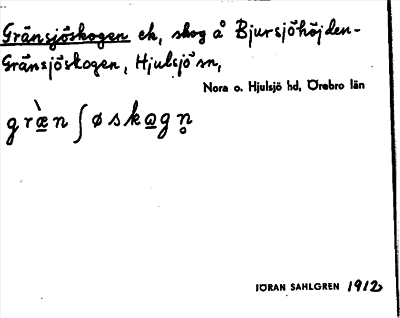 Gränsjöskogen ek, skog å Bjursjöhöjden-
Gränsjöskogen, Hjulsjö sn,
Nora o. Hjulsjö hd, Örebro län
græ̀nʃøskɷgn̥
JÖRAN SAHLGREN 1912